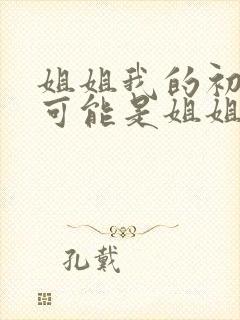 姐姐我的初
可能是姐姐
孔戴